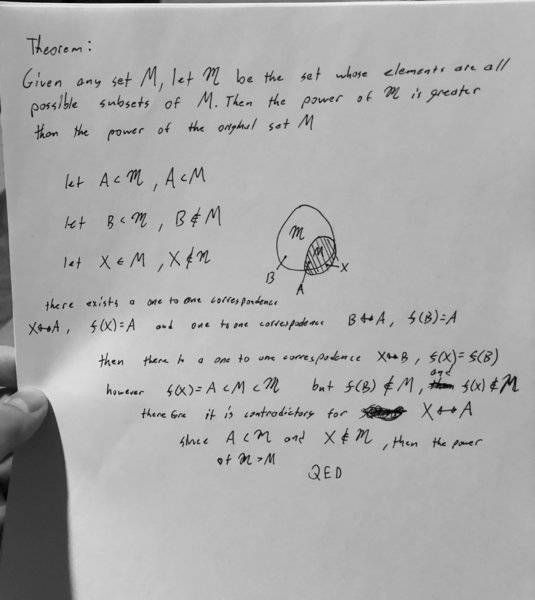 Theorem:
Given any set M, let 𝔐 be the set whose elements are all
possible subsets of M. Then the power of 𝔐 is greater
than the power of the original set M
let A ⊂ 𝔐, A ⊂ M
let B ⊂ 𝔐, B ∉ M
let X ∈ M, X ∉ 𝔐
𝔐
M
B
A
X
there exists a one to one correspondence
X↔A, f(X)=A and one to one correspondence B↔A, f(B)=A
then there is a one to one correspondence X↔B, f(X)=f(B)
however f(X)=A ⊂ M ⊂ 𝔐 but f(B) ∉ M, and f(X) ∉ M
therefore it is contradictory for X↔A
since A ⊂ 𝔐 and X ∉ 𝔐, then the power
of 𝔐 > M
QED